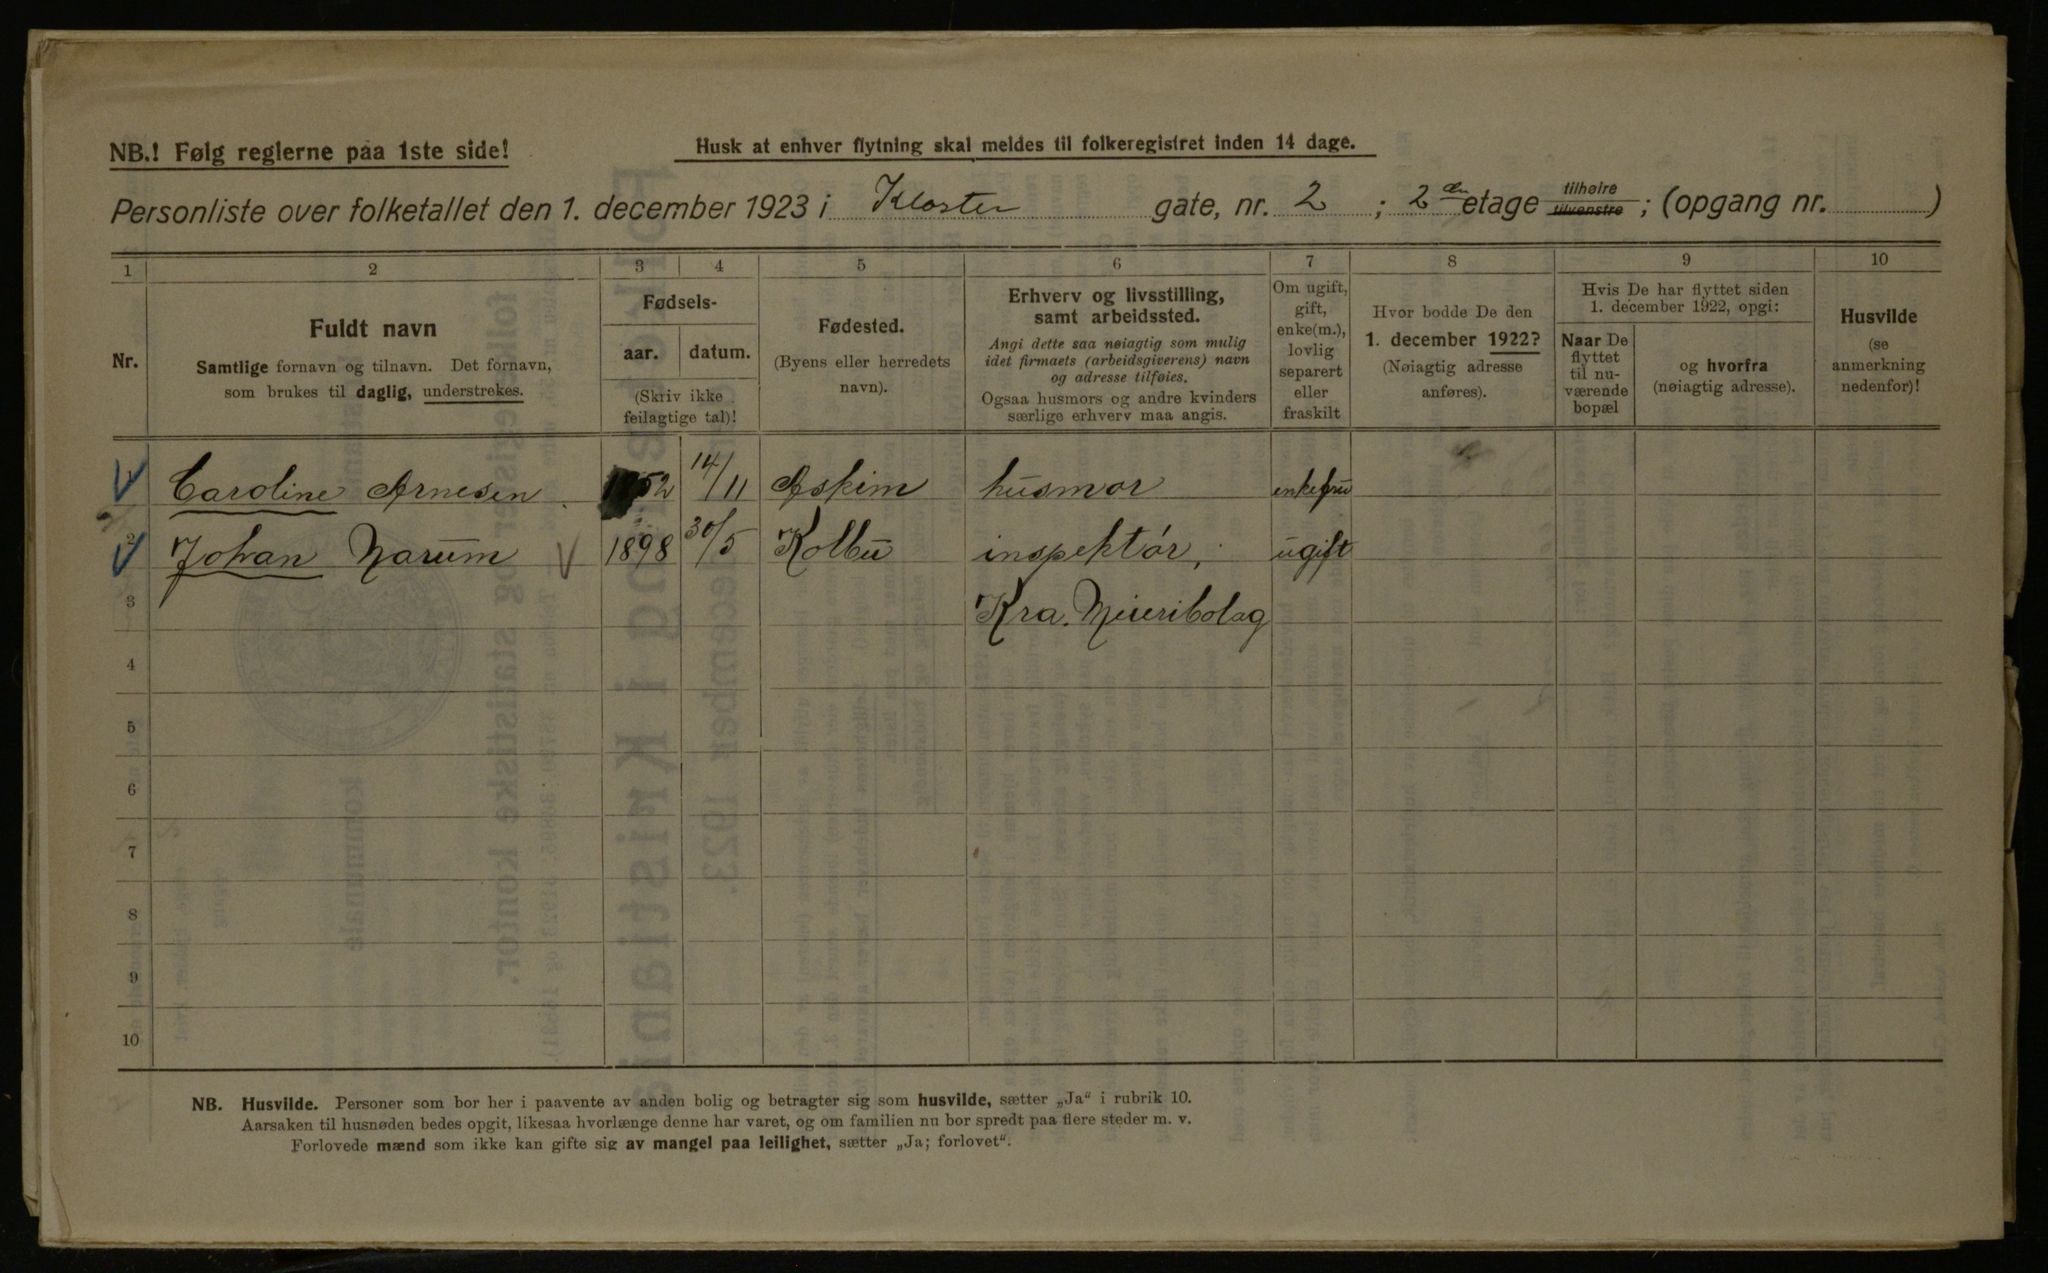 NB.! Følg reglerne paa 1ste side!
Husk at enhver flytning skal meldes til folkeregistret inden 14 dage.
Personliste over folketallet den 1. december 1923 i Kloster gate, nr. 2 ; 2den etage tilhøire tilvenstre ; (opgang nr. )
1 2 3 4 5 6 7 8 9 10
Nr.
Fuldt navn
Samtlige fornavn og tilnavn. Det fornavn,
som brukes til daglig, understrekes.
Fødsels-
aar. datum.
(Skriv ikke
feilagtige tal)!
Fødested.
(Byens eller herredets
navn).
Erhverv og livsstilling,
samt arbeidssted.
Angi dette saa nøiagtig som mulig
idet firmaets (arbeidsgiverens) navn
og adresse tilføies.
Ogsaa husmors og andre kvinders
særlige erhverv maa angis.
Om ugift,
gift,
enke(m.),
lovlig
separert
eller
fraskilt
Hvor bodde De den
1. december 1922?
(Nøiagtig adresse
anføres).
Hvis De har flyttet siden
1. december 1922, opgi:
Naar De
flyttet
til nu-
værende
bopæl
og hvorfra
(nøiagtig adresse).
Husvilde
(se
anmerkning
nedenfor)!
1 Caroline Arnesen 1852 14/11 Askim husmor enkefru
2 Johan Narum 1898 30/5 Kolbu inspektør, ugift
3 Kra. Meieribolag
4
5
6
7
8
9
10
NB. Husvilde. Personer som bor her i paavente av anden bolig og betragter sig som husvilde, sætter „Ja" i rubrik 10.
Aarsaken til husnøden bedes opgit, likesaa hvorlænge denne har varet, og om familien nu bor spredt paa flere steder m. v.
Forlovede mænd som ikke kan gifte sig av mangel paa leilighet, sætter „Ja; forlovet".